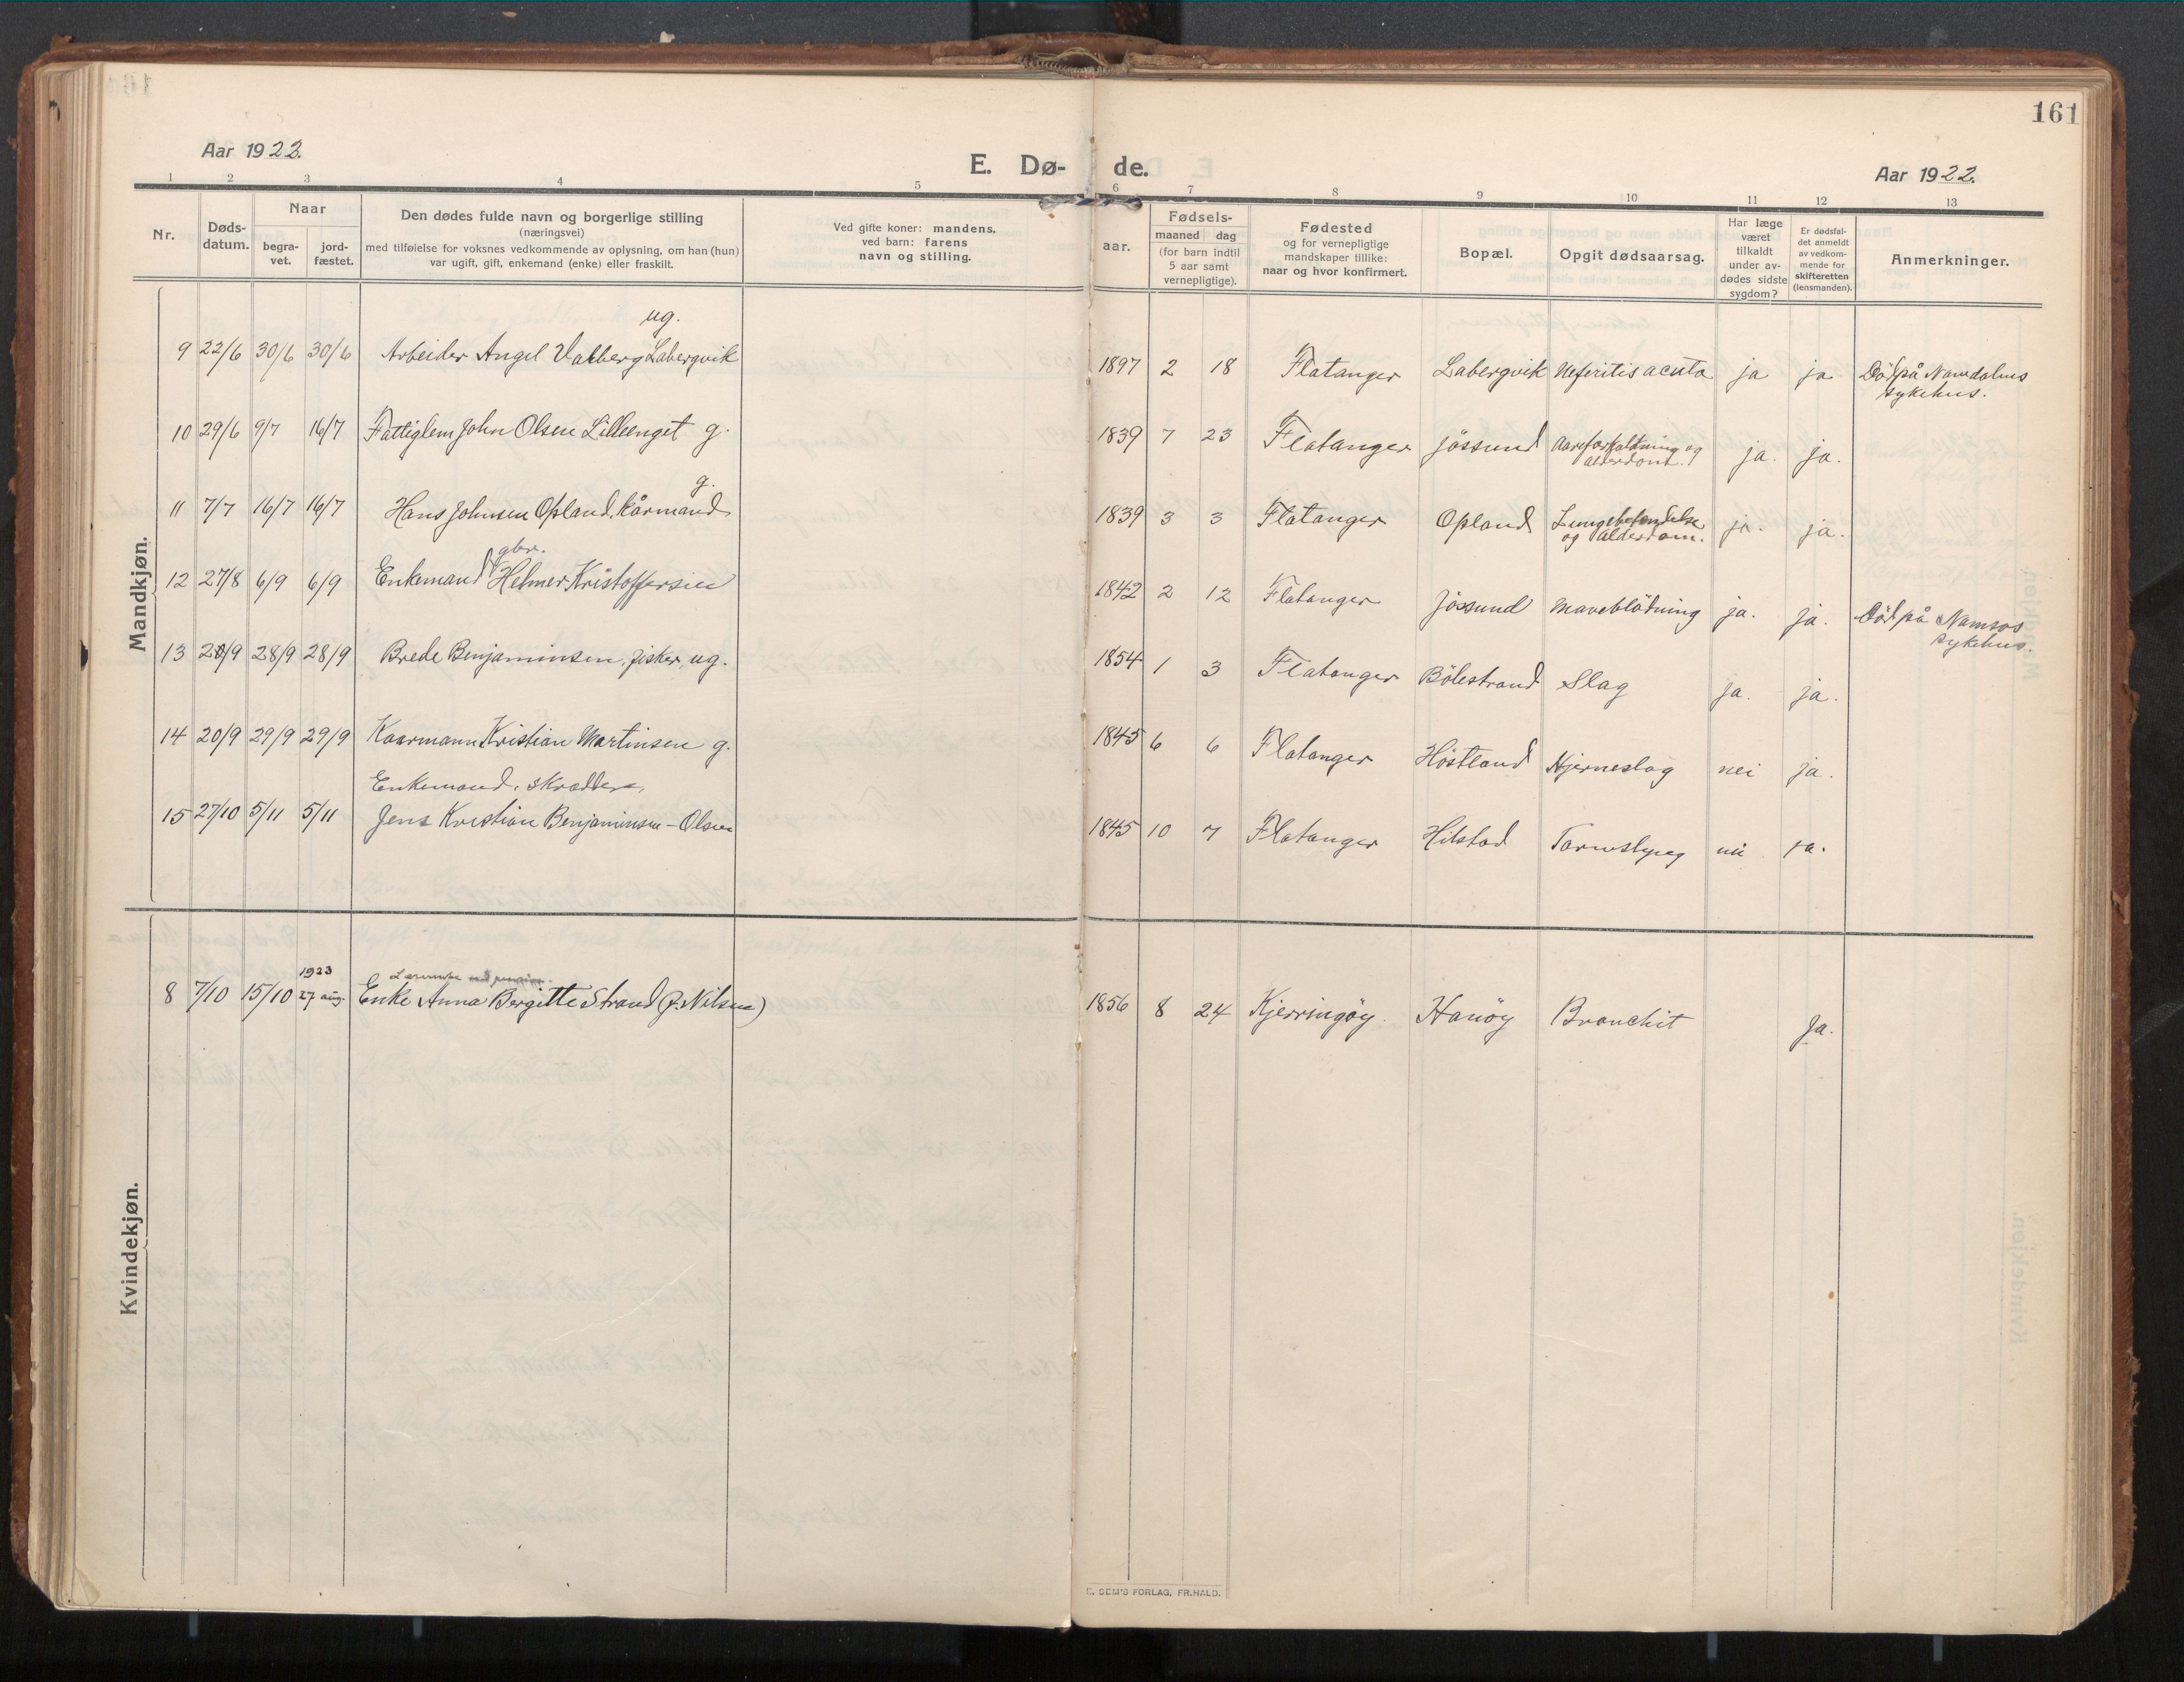 161
Aar 1922.
E. Dø- de.
Aar 1922.
1 2 3 4 5 6 7 8 9 10 11 12 13
Nr.
Døds-
datum.
Naar
begra-
vet.
jord-
fæstet.
Den dødes fulde navn og borgerlige stilling
(næringsvei)
med tilføielse for voksnes vedkommende av oplysning, om han (hun)
var ugift, gift, enkemand (enke) eller fraskilt.
Ved gifte koner: mandens,
ved barn: farens
navn og stilling.
aar.
Fødsels-
maaned dag
(for barn indtil
5 aar samt
vernepligtige).
Fødested
og for vernepligtige
mandskaper tillike:
naar og hvor konfirmert.
Bopæl.
Opgit dødsaarsag.
Har læge
været
tilkaldt
under av-
dødes sidste
sygdom?
Er dødsfal-
det anmeldt
av vedkom-
mende for
skifteretten
(lensmanden).
Anmerkninger.
Mandkjøn.
ug.
9 22/6 30/6 30/6 Arbeider Angel Valberg Labergvik 1897 2 18 Flatanger Labergvik Nefritis acuta ja ja Död på Namdalens
sykehus.
10 29/6 9/7 16/7 Fattiglem John Olsen Lilleenget g. 1839 7 23 Flatanger Jössund Aareforkaldtning og
alderdom. ja. ja.
g.
11 7/7 16/7 16/7 Hans Johnsen Opland, Kårmand 1839 3 3 Flatanger Opland Lungebetendelse
og Alderdom. ja. ja.
gbr.
12 27/8 6/9 6/9 Enkemand Helmer Kristoffersen 1842 2 12 Flatanger Jössund Maveblödning ja. ja. Död på Namsos
sykehus.
13 28/9 28/9 Brede Benjaminsen, fisker, ug. 1854 1 3 Flatanger Bölestrand Slag ja. ja.
14 20/9 29/9 29/9 Kaarmann Kristian Martinsen g. 1845 6 6 Flatanger Höstland Hjerneslag nei ja.
Enkemand, skrædder,
15 27/10 5/11 5/11 Jens Kristian Benjaminsen-Olsen 1845 10 7 Flatanger Hilstad Tarmslyng nei ja.
Kvindekjøn.
1923
8 7/10 15/10 27 aug. Enke Anna Bergitte Strand (f. Nilsen) 1856 8 24 Kjerringöy. Hanöy Bronchit Ja.
E. SEM'S FORLAG, FR.HALD.